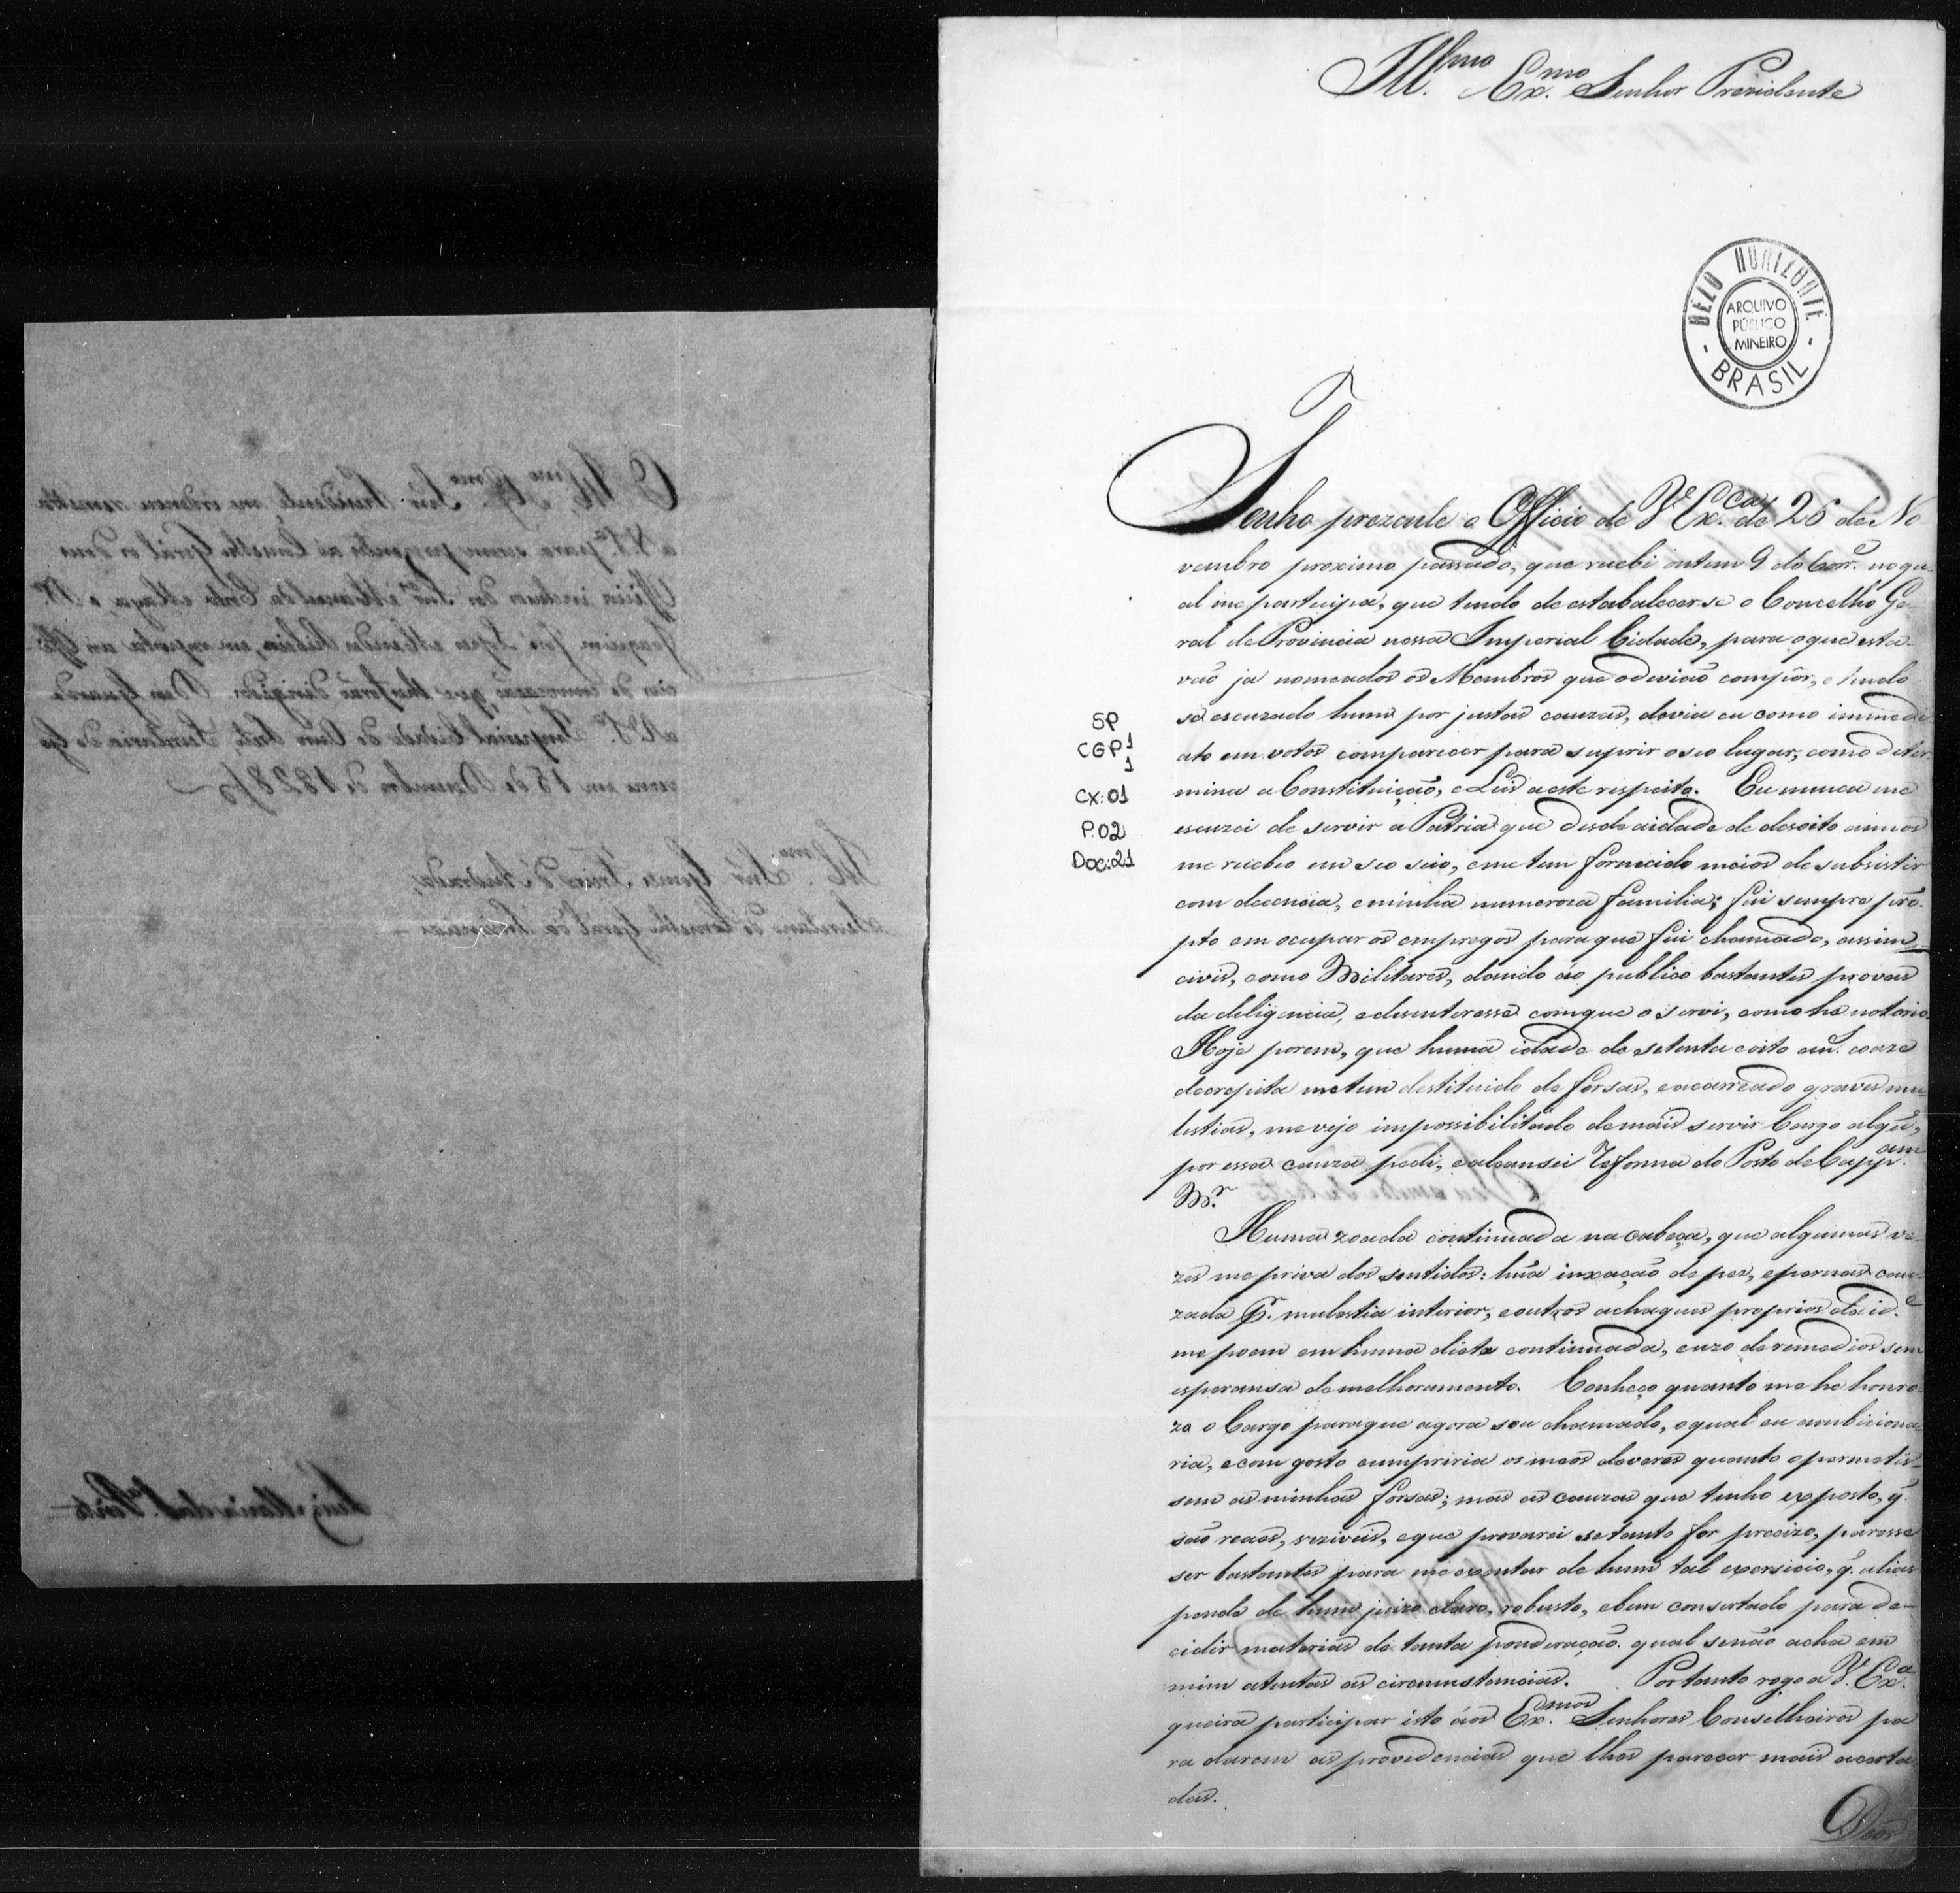 Ill.mo Ex.mo Senhor Prezidente
BELO HORIZONTE
ARQUIVO
PÚBLICO
MINEIRO
BRASIL
Tenho prezente o Officio de V Ex.ca de 26 de No
vembro proximo passado, que recebi ontem 9 do Corr.e no qu
al me participa, que tendo de estabalecer-se o Concelho Ge
ral de Provincia nessa Imperial Cidade, para o que esta-
vaõ ja nomeados os Membros que o deviaõ compôr, e tendo
se escuzado hum por justas cauzas, devia eu como immedi
ato em votos comparecer para suprir o seo lugar, como deter
mina a Constituiçaõ, e Leis a este respeito. Eu nunca me
escuzei de servir a Patria que desde a idade de desoito annos
me recebeo em seo seio, e me tem fornecido meios de subsistir
com decencia, e minha numeroza familia; fui sempre prõ-
pto em ocupar os empregos para que fui chamado, assim
civis, como Militares, dando áo publico bastantes provas
da deligencia, e desenteresse com que o servi, como he notorio.
Hoje porem, que huma idade de setenta e oito an.s coaze
decrepita me tem destituido de forsas, e acarreado graves mu
lestias, me vejo impossibilitado de mais servir Cargo algũ,
por essa cauza pedi, e alcansei Reforma do Posto de Capp.am
M.r
Huma zoada continuada na cabeça, que algumas ve-
zes me priva dos sentidos: hũa inxaçaõ de pez, e pernas cau-
zada p.r mulestia interior, e outros achaques proprios da id.e
me poem em huma dieta continuada, e uzo de remedios sem
esperansa de melhoramento. Conheço quanto me he honro
zo o Cargo para que agora sou chamado, o qual eu ambiciona
ria, e com gosto cumpriria os meos deveres quanto o permetis
sem as minhas forsas; mas as cauzas que tenho exposto, q̃
saõ reaes, e veziveis, e que provarei se tanto for precizo, paresse
ser bastantes para me exentar de hum tal exersicio, q̃. alias
pende de hum juizo claro, robusto, e bem consertado para de-
cidir materias de tanta ponderaçaõ. qual se naõ acha em
mim atentas as circumstancias. Portanto rogo a V. Ex.a
queira participar isto áos Ex.mos Senhores Conselheiros pa
ra darem as providencias que lhes parecer mais acerta
das.
Deos
SP
CGP1
1
CX:01
P.02
Doc:21
O Ill.mo Ex.mo Snr. Prezidente me ordenou remetta
a V.S.a para serem prezentes ao Conselho Geral os dous
Officios inclusos dos Snr.es Manoel da Costa Maya e D.r
Joaquim José Lopes Mendes Ribeiro, em resposta aos Offi
cios de convocaçaõ, que lhes foraõ dirigidos. Deos Guarde
a V.S.a Imperial Cidade do Ouro Preto Secretaria do Go
verno em 15 de Dezembro de 1828
Ill.mo Snr. Gomes Freire d'Andrade,
Secretario do Conselho Geral da Provincia
Luiz Maria da S.a Pinto